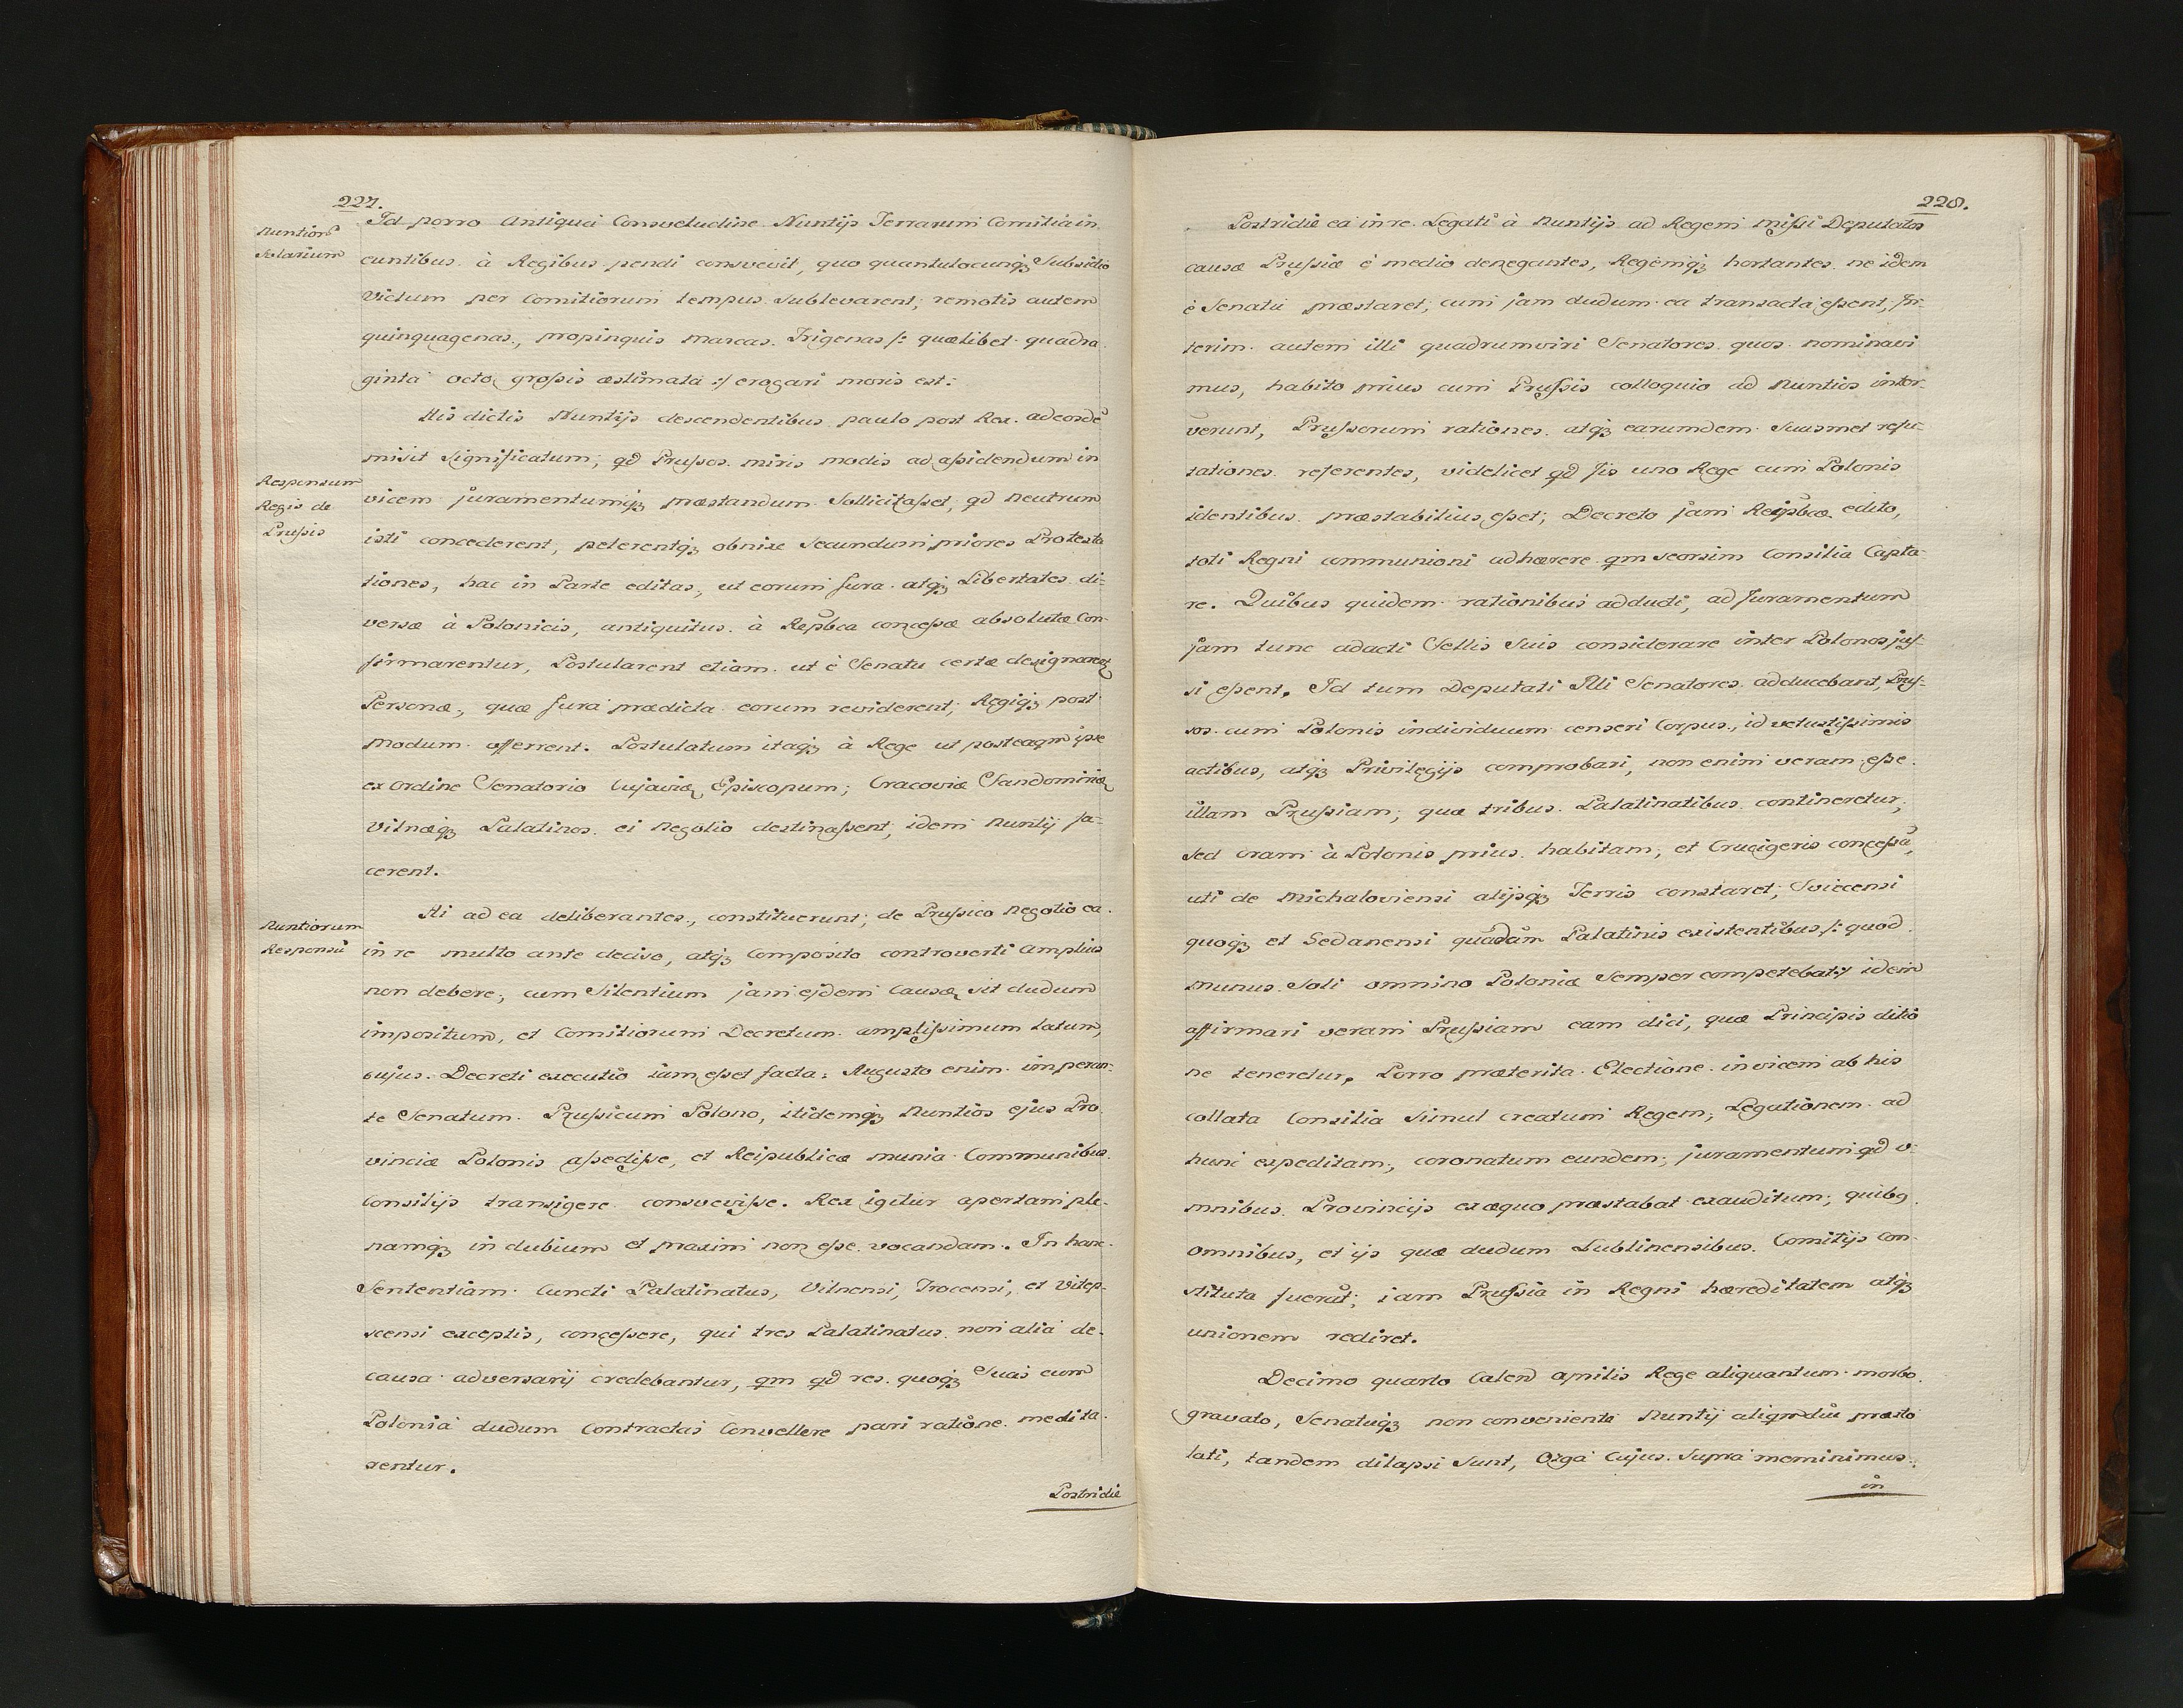 227.
Nuntiorũ
Solarium
Id porro Antiqua Consvetudine Nuntijs Terrarum Comitia in
euntibus à Regibus pendi consvevit, quo quantulocunqꝫ Subsidio
Victum per Comitiorum tempus sublevarent; remotis autem
quinquagenas, propinquis marcas Trigenas /: quælibet quadra
ginta octo grossis æstimata :/ erogari moris est.
His dictis Nuntijs descendentibus paulo post Rex ad eosdẽ
misit significatum; qd Prussos miris modis ad assidendum in
Responsum
Regis de
Prussis
vicem juramentumqꝫ præstandum Sollicitasset, qd neutrum
isti concederent, peterentqꝫ obnixe Secundum priores Protesta
tiones, hac in Parte editas, ut eorum Jura atqꝫ Libertates di=
versæ à Polonicis, antiquitus à Repbca concessæ absolutæ Con=
firmarentur, Postularent etiam ut è Senatu certæ designarentꝫ
Personæ, quæ Jura prædicta eorum reviderent; Regiqꝫ post
modum offerrent. Postulatum itaqꝫ à Rege ut posteaqm ipse
ex Ordine Senatorio Cujaviæ Episcopum; Cracoviæ Sandomiriæ
Vilnæqꝫ Palatinos ei negotio destinassent, idem Nuntij fa=
cerent.
Nuntiorum
Responsũ
Hi ad ea deliberantes, constituerunt; de Prussico negotio ea
in re multo ante deciso, atqꝫ Composito controverti amplius
non debere, cum Silentium jam ejdem Causæ sit dudum
impositum, et Comitiorum Decretum amplissimum latum,
cujus Decreti executio iam esset facta; Augusto enim imperan=
te Senatum Prussicum Polono, itidemqꝫ Nuntios ejus Pro
vinciæ Polonis assedisse, et Reipublicæ munia Communibus
Consilijs transigere consvevisse. Rex igitur apertam ple=
namqꝫ in dubium et maximi non esse vocandam. In hanc
Sententiam Cuncti Palatinatus, Vilnensi, Trocensi, et Vitep=
scensi exceptis, concessere, qui tres Palatinatus non alia de
causa adversarij credebantur, qm qd res quoqꝫ Suas cum
Polonia dudum Contractas Convellere pari ratione medita=
rentur.
Postridie
228.
Postridie ea in re Legati à Nuntijs ad Regem missi Deputatos
causæ Prussiæ è medio denegantes, Regemqꝫ hortantes ne idem
è Senatu præstaret, cum jam dudum ea transacta essent, In=
terim autem illi quadrumviri Senatores quos nominavi
mus, habito prius cum Prussis colloquio ad Nuntios inter=
verunt, Prussorum rationes atqꝫ earumdem Suasmet refu=
tationes referentes, videlicet qd Jis uno Rege cum Polonis
identibus præstabilius esset; Decreto jam Reipbcæ edito,
toti Regni communioni adhærere qm seorsim Consilia Capta=
re. Quibus quidem rationibus adducti, ad Juramentum
jam tunc adacti Sellis Suis considerare inter Polonos jus=
si essent. Id tum Deputati Illi Senatores adducebant, Prus=
sos cum Polonis individuum censeri Corpus, id vetustissimis
actibus, atqꝫ Privilegijs comprobari, non enim veram esse
illam Prussiam; quæ tribus Palatinatibus contineretur;
sed oram à Polonis prius habitam, et Crucigeris concessã,
uti de Michaloviensi alijsqꝫ Terris constaret; Sviecensi
quoqꝫ et Gedanensi quõdam Palatinis existentibus /: quod
munus Soli omnino Poloniæ Semper competebat :/ idem
affirmari veram Prussiam eam dici, quæ Principis ditio
ne teneretur. Porro præterita Electione invicem ab his
collata Consilia Simul creatum Regem; Legationem ad
hunc expeditam, coronatum eundem; juramentum qd o=
mnibus Provincijs exæquo præstabat exauditum; quibꝯ
omnibus, et ijs quæ dudum Lublinensibus Comitijs con=
stituta fuerũt; iam Prussia in Regni hæreditatem atqꝫ
unionem rediret.
Decimo quarto Calend aprilis Rege aliquantum morbo
gravato, Senatuqꝫ non conveniente Nuntij aliqmdiu præsto
lati, tandem dilapsi sunt, Orga Cujus Supra meminimus
in